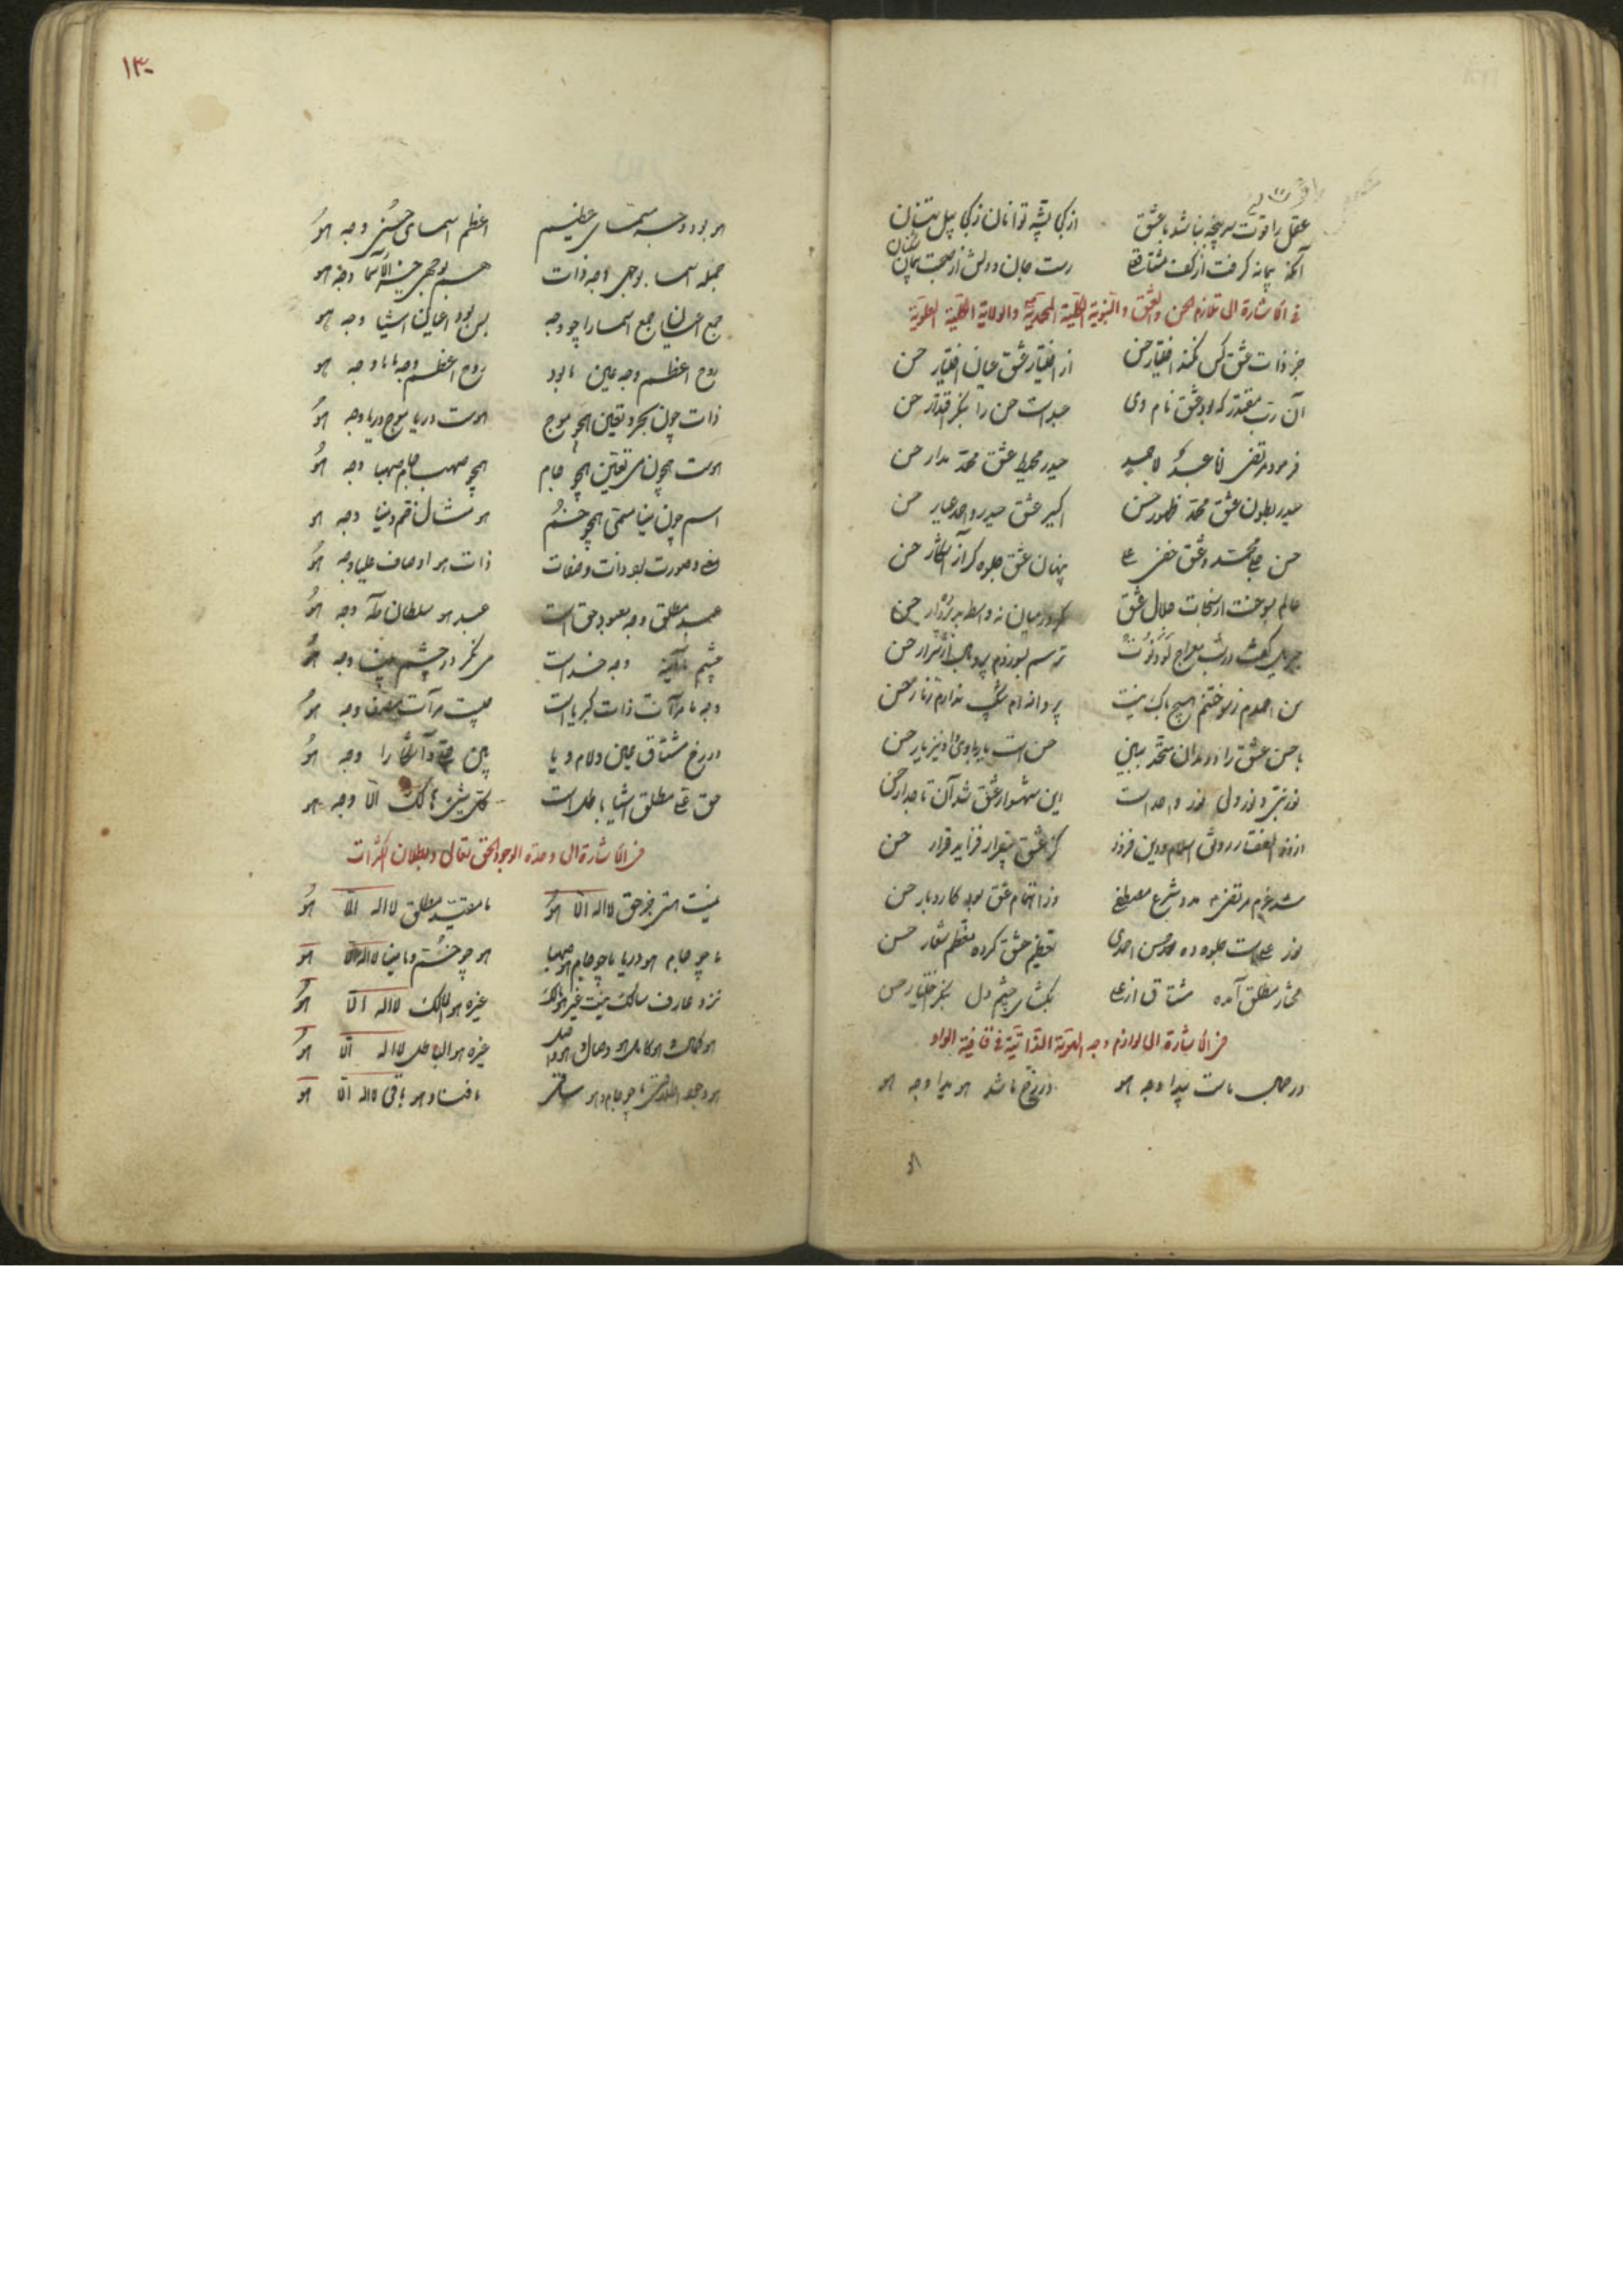 عقل را قوت سرپنجه نباشد با عشق از کجا پشه توانان ز کجا پیل تنان
آنکه پیمانه گرفت از کف مشتاق رست جان و دلش از صحبت پیمان شکنان
فی الاشارة الی تلازم الحسن والعشق والنبویة الکلیة المحمدیة والولایة الکلیة العلویة
جز ذات عشق کس نکند اختیار حسن از اختیار عشق عیان اختیار حسن
آن رب مقتدر که بود عشق نام وی حسن را بنگر اقتدار حسن
فرمود مرتضی انا عبد حیدر محیط عشق محمد مدار حسن
حیدر بطون عشق محمد ظهور حسن اکسیر عشق حیدر و احمد عیار حسن
حسن محمد و عشق خفی علی پنهان عشق جلوه گر آشکار حسن
عالم بسوخت از سبحات جلال عشق گر در میان نه واسطه بد پرده‌دار حسن
جبریل گفت در شب معراج لو دنوت ترسم بسوزدم پر و بال از شرار حسن
من احمدم ز سوختنم هیچ باک نیست پروانه‌ام شکیب ندارم ز نار حسن
با حسن عشق را متحد ببین حسن است یار و نیز یار حسن
نور نبی و نور ولی نور واحد است این شهسوار عشق شد آن تاجدار حسن
از ذوالفقار رونق اسلام و دین فزود کز عشق بیقرار فزاید قرار حسن
شد عزم مرتضی مدد شرع مصطفی وز اهتمام عشق بود کار و بار حسن
نور علی است جلوه ده حسن احمدی تعظیم عشق کرده معظم شعار حسن
مختار مطلق آمده مشتاق از علی بگشای چشم دل بنگر اختیار حسن
فی الاشارة الی لوازم وجه الهویة الذاتیة فی قافیة الواو
در جمال ماست پیدا وجه هو در رخ ما شد هویدا وجه هو
هو بود وجه مسمای عظیم اعظم اسمای حسنی وجه هو
جمله اسما بوجهی وجه ذات هم بوجهی وجه هو
جمع اعیان جمع اسما را چو وجه پس بود اعیان اشیا وجه هو
روح اعظم وجه عین ما بود روح اعظم وجه ما ما وجه هو
ذات چون بحر و تعین همچو موج هوست دریا موج دریا وجه هو
هوست همچون می تعین همچو جام همچو صهبا جام صهبا وجه هو
اسم چون مینا مسمی همچو خم هو مثال خم و مینا وجه هو
معنی و صورت بود ذات و صفات ذات هو اوصاف علیا وجه هو
عبد مطلق وجه معبود حق است عبد هو سلطان طه وجه هو
چشم ما آیینه وجه خداست می نگر در چشم بینا وجه هو
وجه ما مرآت ذات کبریاست چیست مرآت مصفا وجه هو
در رخ مشتاق عین و لام و یا بین خفی و آشکارا وجه هو
حق علی مطلق اشیا باطل است کل شیء هالک الا وجه هو
فی الاشارة الی وحدة الوجود الحق تعالی وبطلان الکثرات
نیست هستی جز حق لا اله الا هو ما مقید مطلق لا اله الا هو
ما چو جام هو دریا ما چو جام هو صهبا هو چو خم و ما مینا لا اله الا هو
نزد عارف سالک نیست غیر هو مالک غیره هو الهالک لا اله الا هو
هو کمال و هو کامل هو وصال و هو واصل غیره هو الباطل لا اله الا هو
ما چو جام و هو ساقی ما فنا و هو باقی لا اله الا هو
۱۳۰